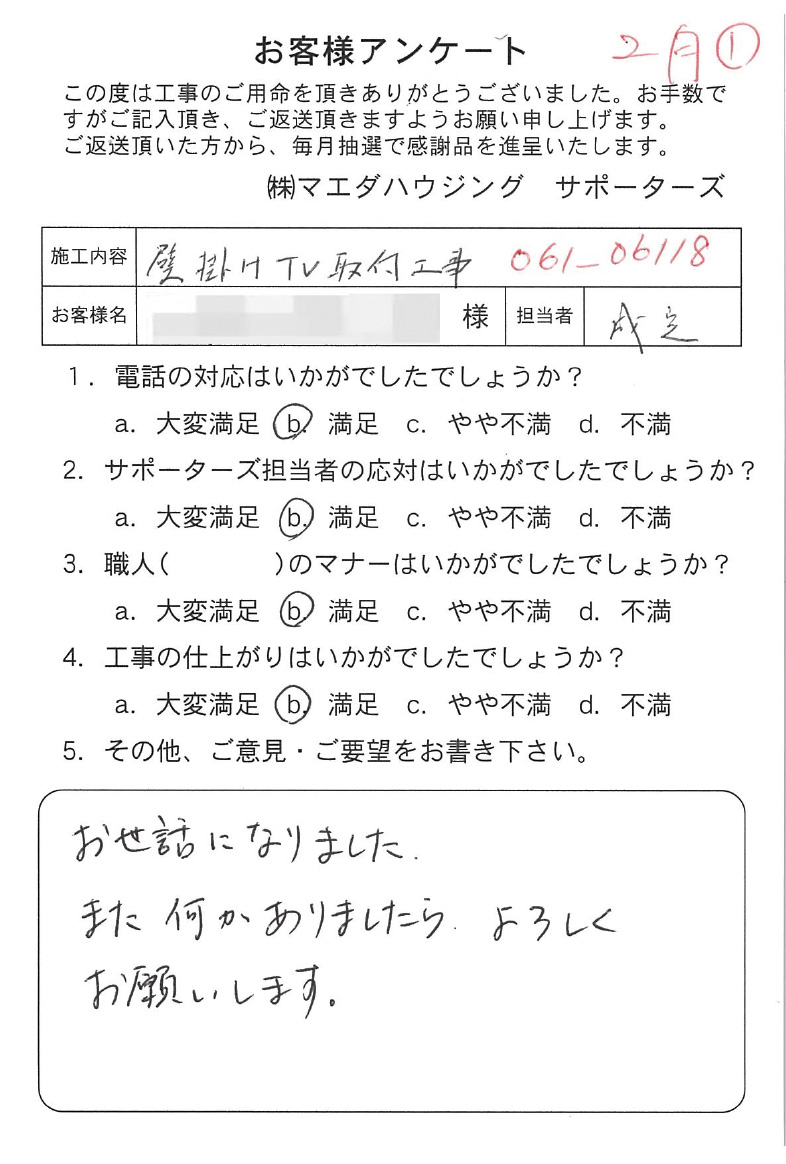 お客様アンケート 2月①
この度は工事のご用命を頂きありがとうございました。お手数で
すがご記入頂き、ご返送頂きますようお願い申し上げます。
ご返送頂いた方から、毎月抽選で感謝品を進呈いたします。
㈱マエダハウジング サポーターズ
施工内容 壁掛けTV取付工事 061-06118
お客様名 様 担当者 成定
1. 電話の対応はいかがでしたでしょうか?
a. 大変満足 b. 満足 c. やや不満 d. 不満
2. サポーターズ担当者の応対はいかがでしたでしょうか?
a. 大変満足 b. 満足 c. やや不満 d. 不満
3. 職人( )のマナーはいかがでしたでしょうか?
a. 大変満足 b. 満足 c. やや不満 d. 不満
4. 工事の仕上がりはいかがでしたでしょうか?
a. 大変満足 b. 満足 c. やや不満 d. 不満
5. その他、ご意見・ご要望をお書き下さい。
お世話になりました.
また何かありましたら. よろしく
お願いします。